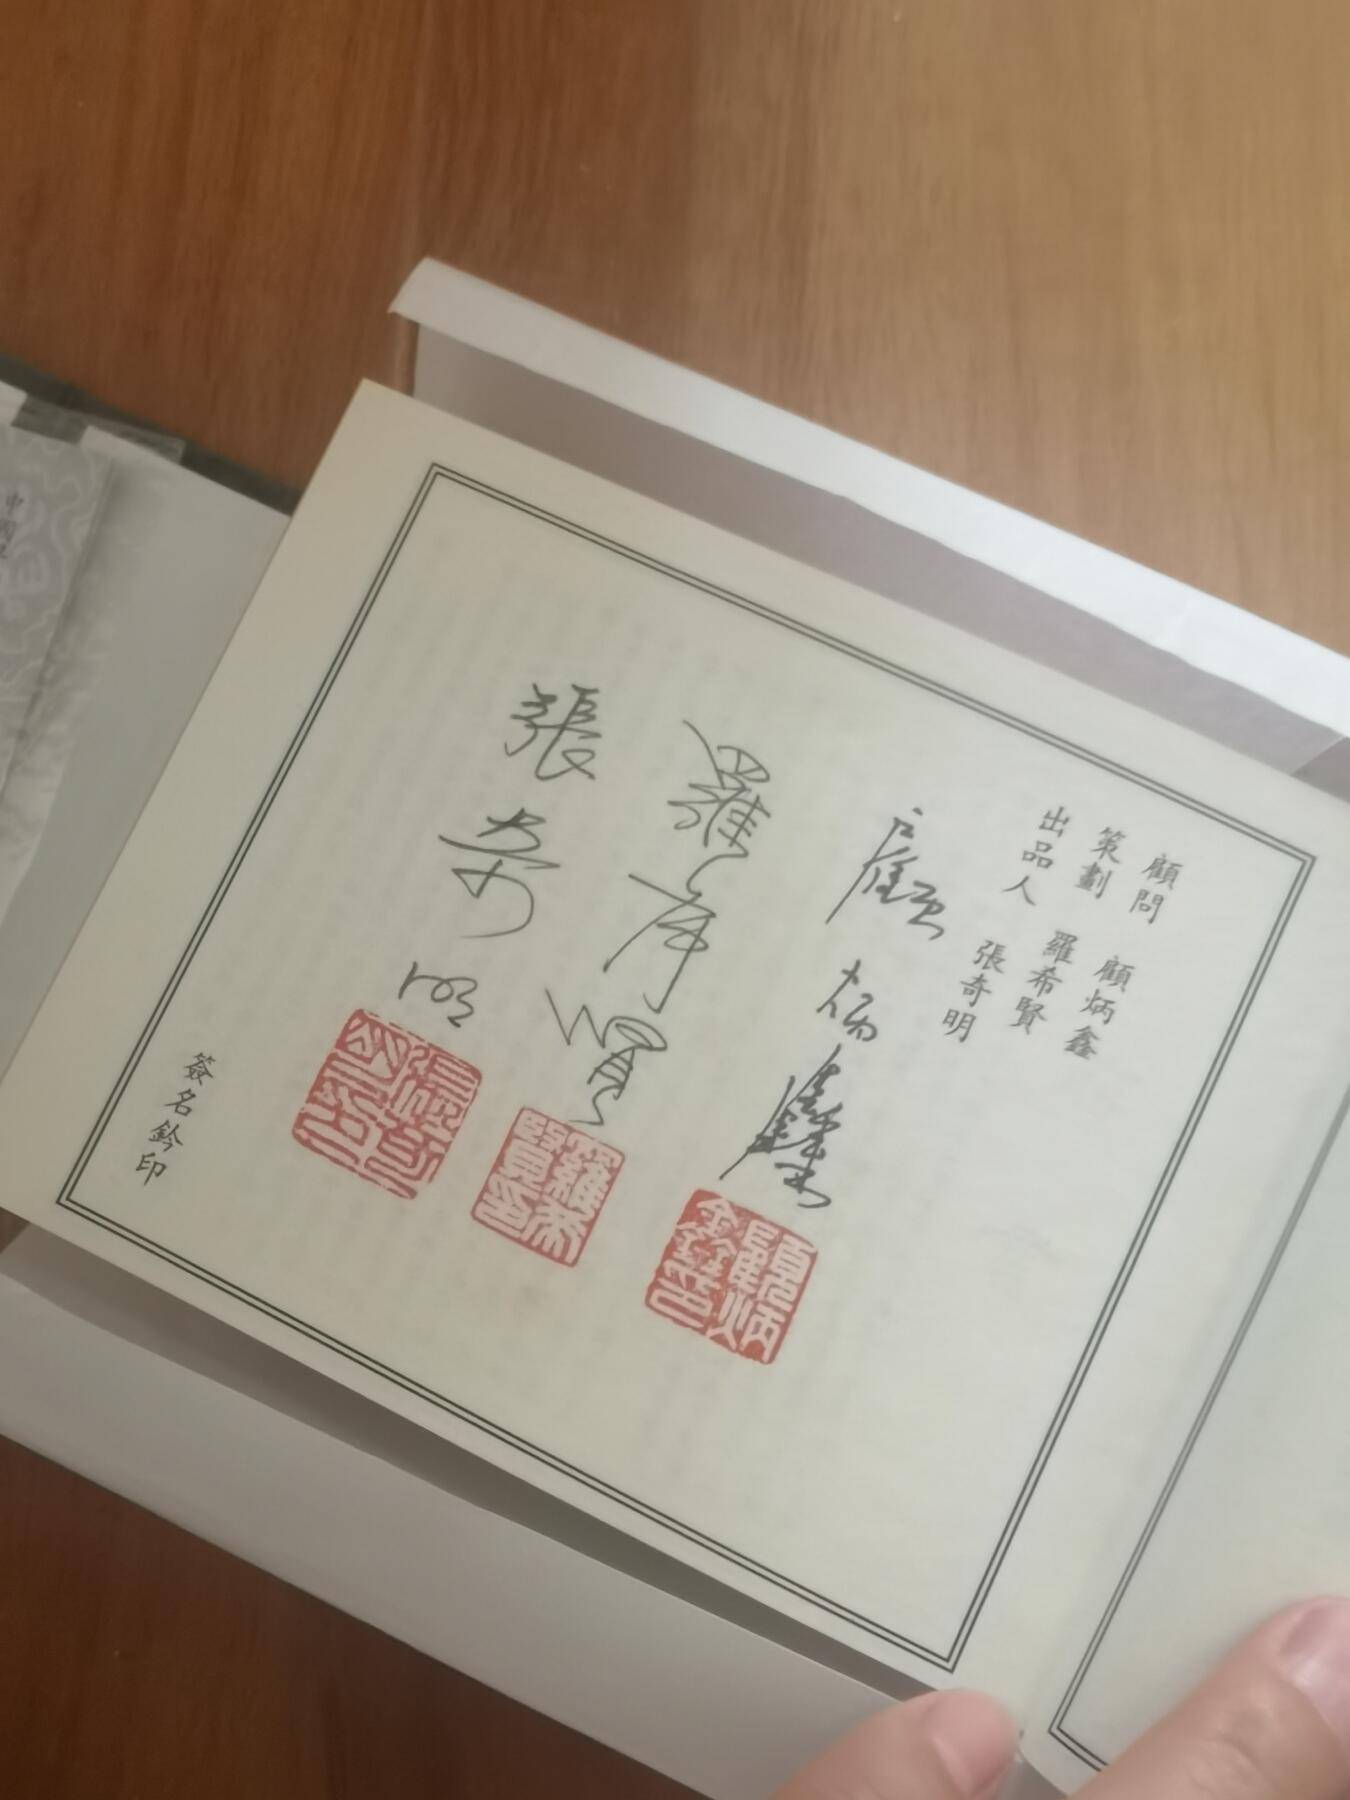 顧問　顧炳鑫
策劃　羅希賢
出品人　張奇明
顧炳鑫
羅希賢
張奇明
顧炳鑫印
羅希賢印
簽名鈐印
中國